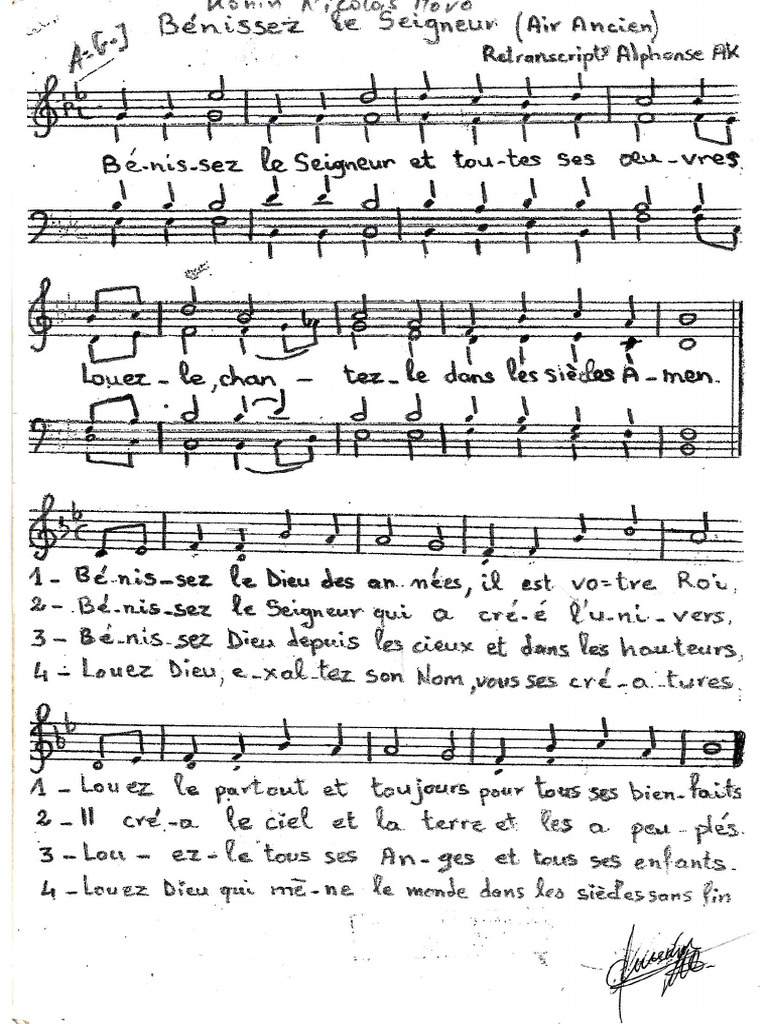 Bénissez le Seigneur (Air Ancien)
Retranscript° Alphonse AK
Bé-nis-sez le Seigneur et tou-tes ses œu-vres
Louez-le, chan - tez-le dans les siècles A-men.
1- Bé-nis-sez le Dieu des an nées, il est vo=tre Roi,
2- Bé-nis-sez le Seigneur qui a cré-é l'u-ni-vers,
3- Bé-nis-sez Dieu depuis les cieux et dans les hauteurs,
4- Louez Dieu, e-xal-tez son Nom, vous ses cré-a-tures
1- Louez le partout et toujours pour tous ses bien-faits
2- Il cré-a le ciel et la terre et les a peu-plés.
3- Lou-ez-le tous ses An-ges et tous ses enfants.
4- Louez Dieu qui mè-ne le monde dans les siècles sans fin